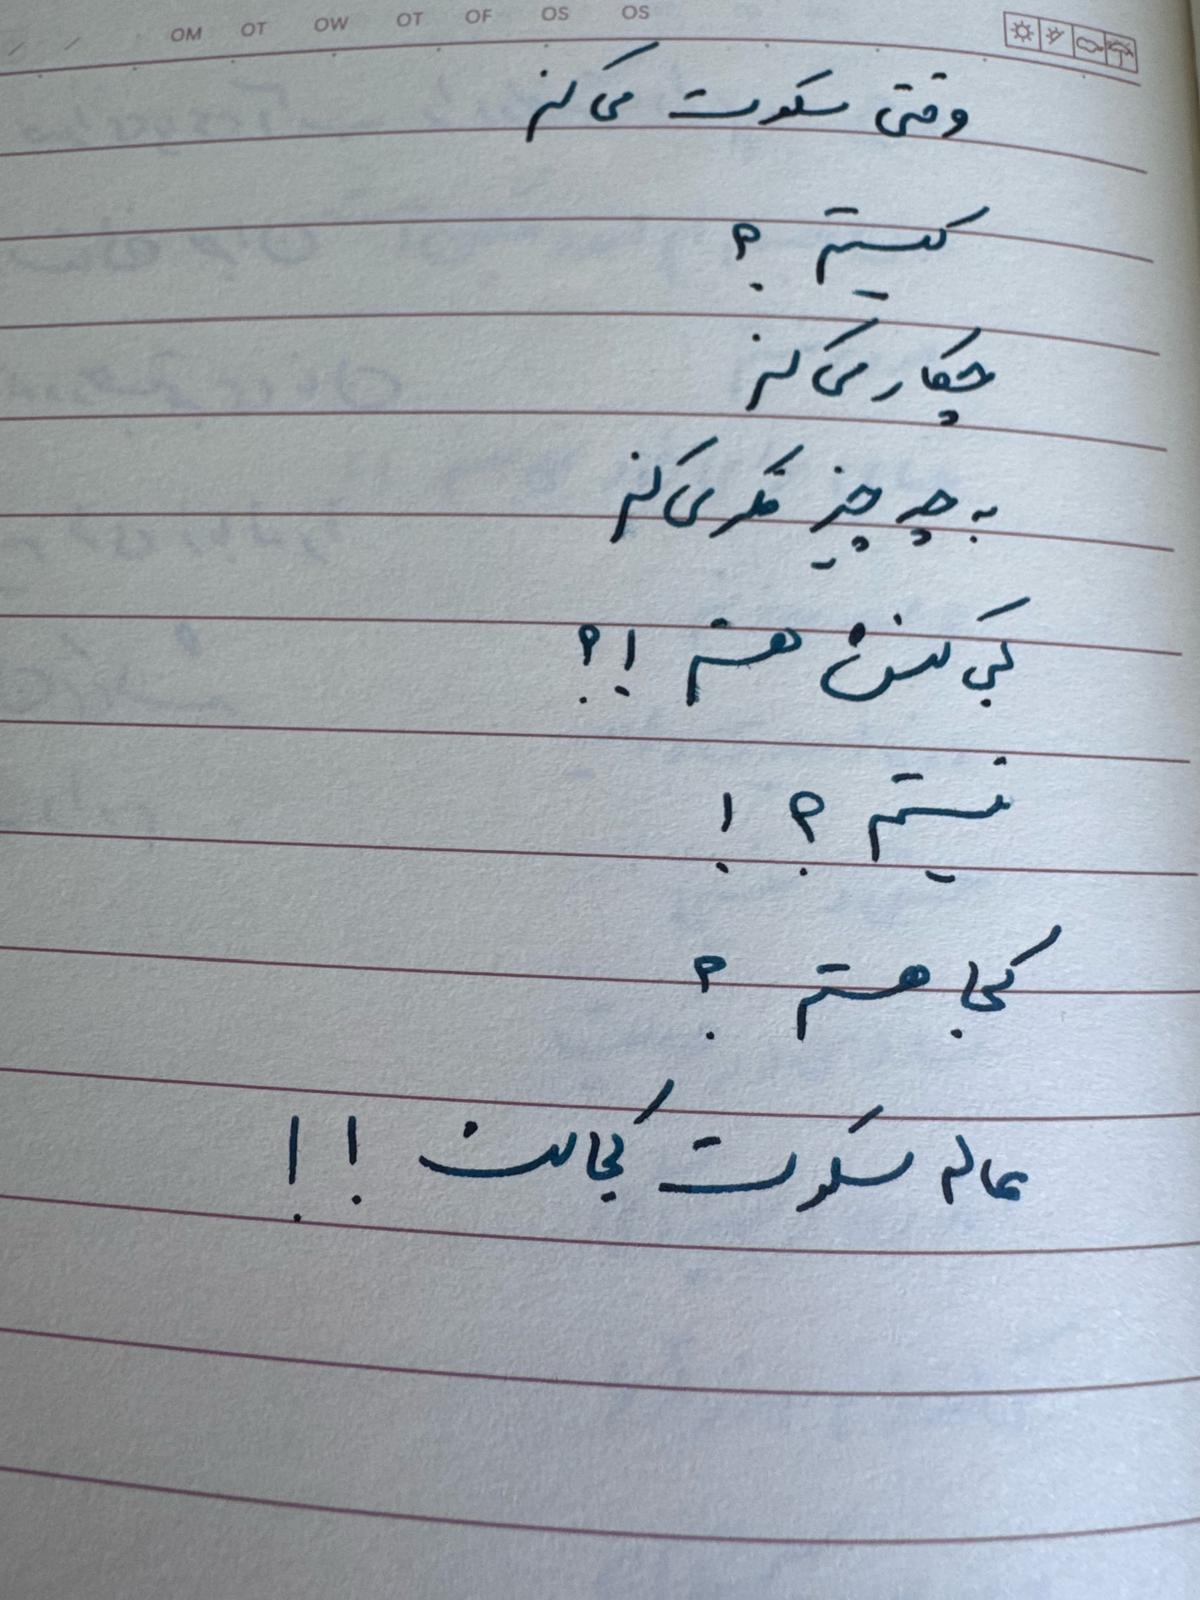 OM OT OW OT OF OS OS
وقتی سکوت می کنم
کیستم ؟
چکار می کنم
به چه چیز فکر می کنم
هستم !؟
نیستم ؟ !
کجا هستم ؟
عالم سکوت کجاست !!